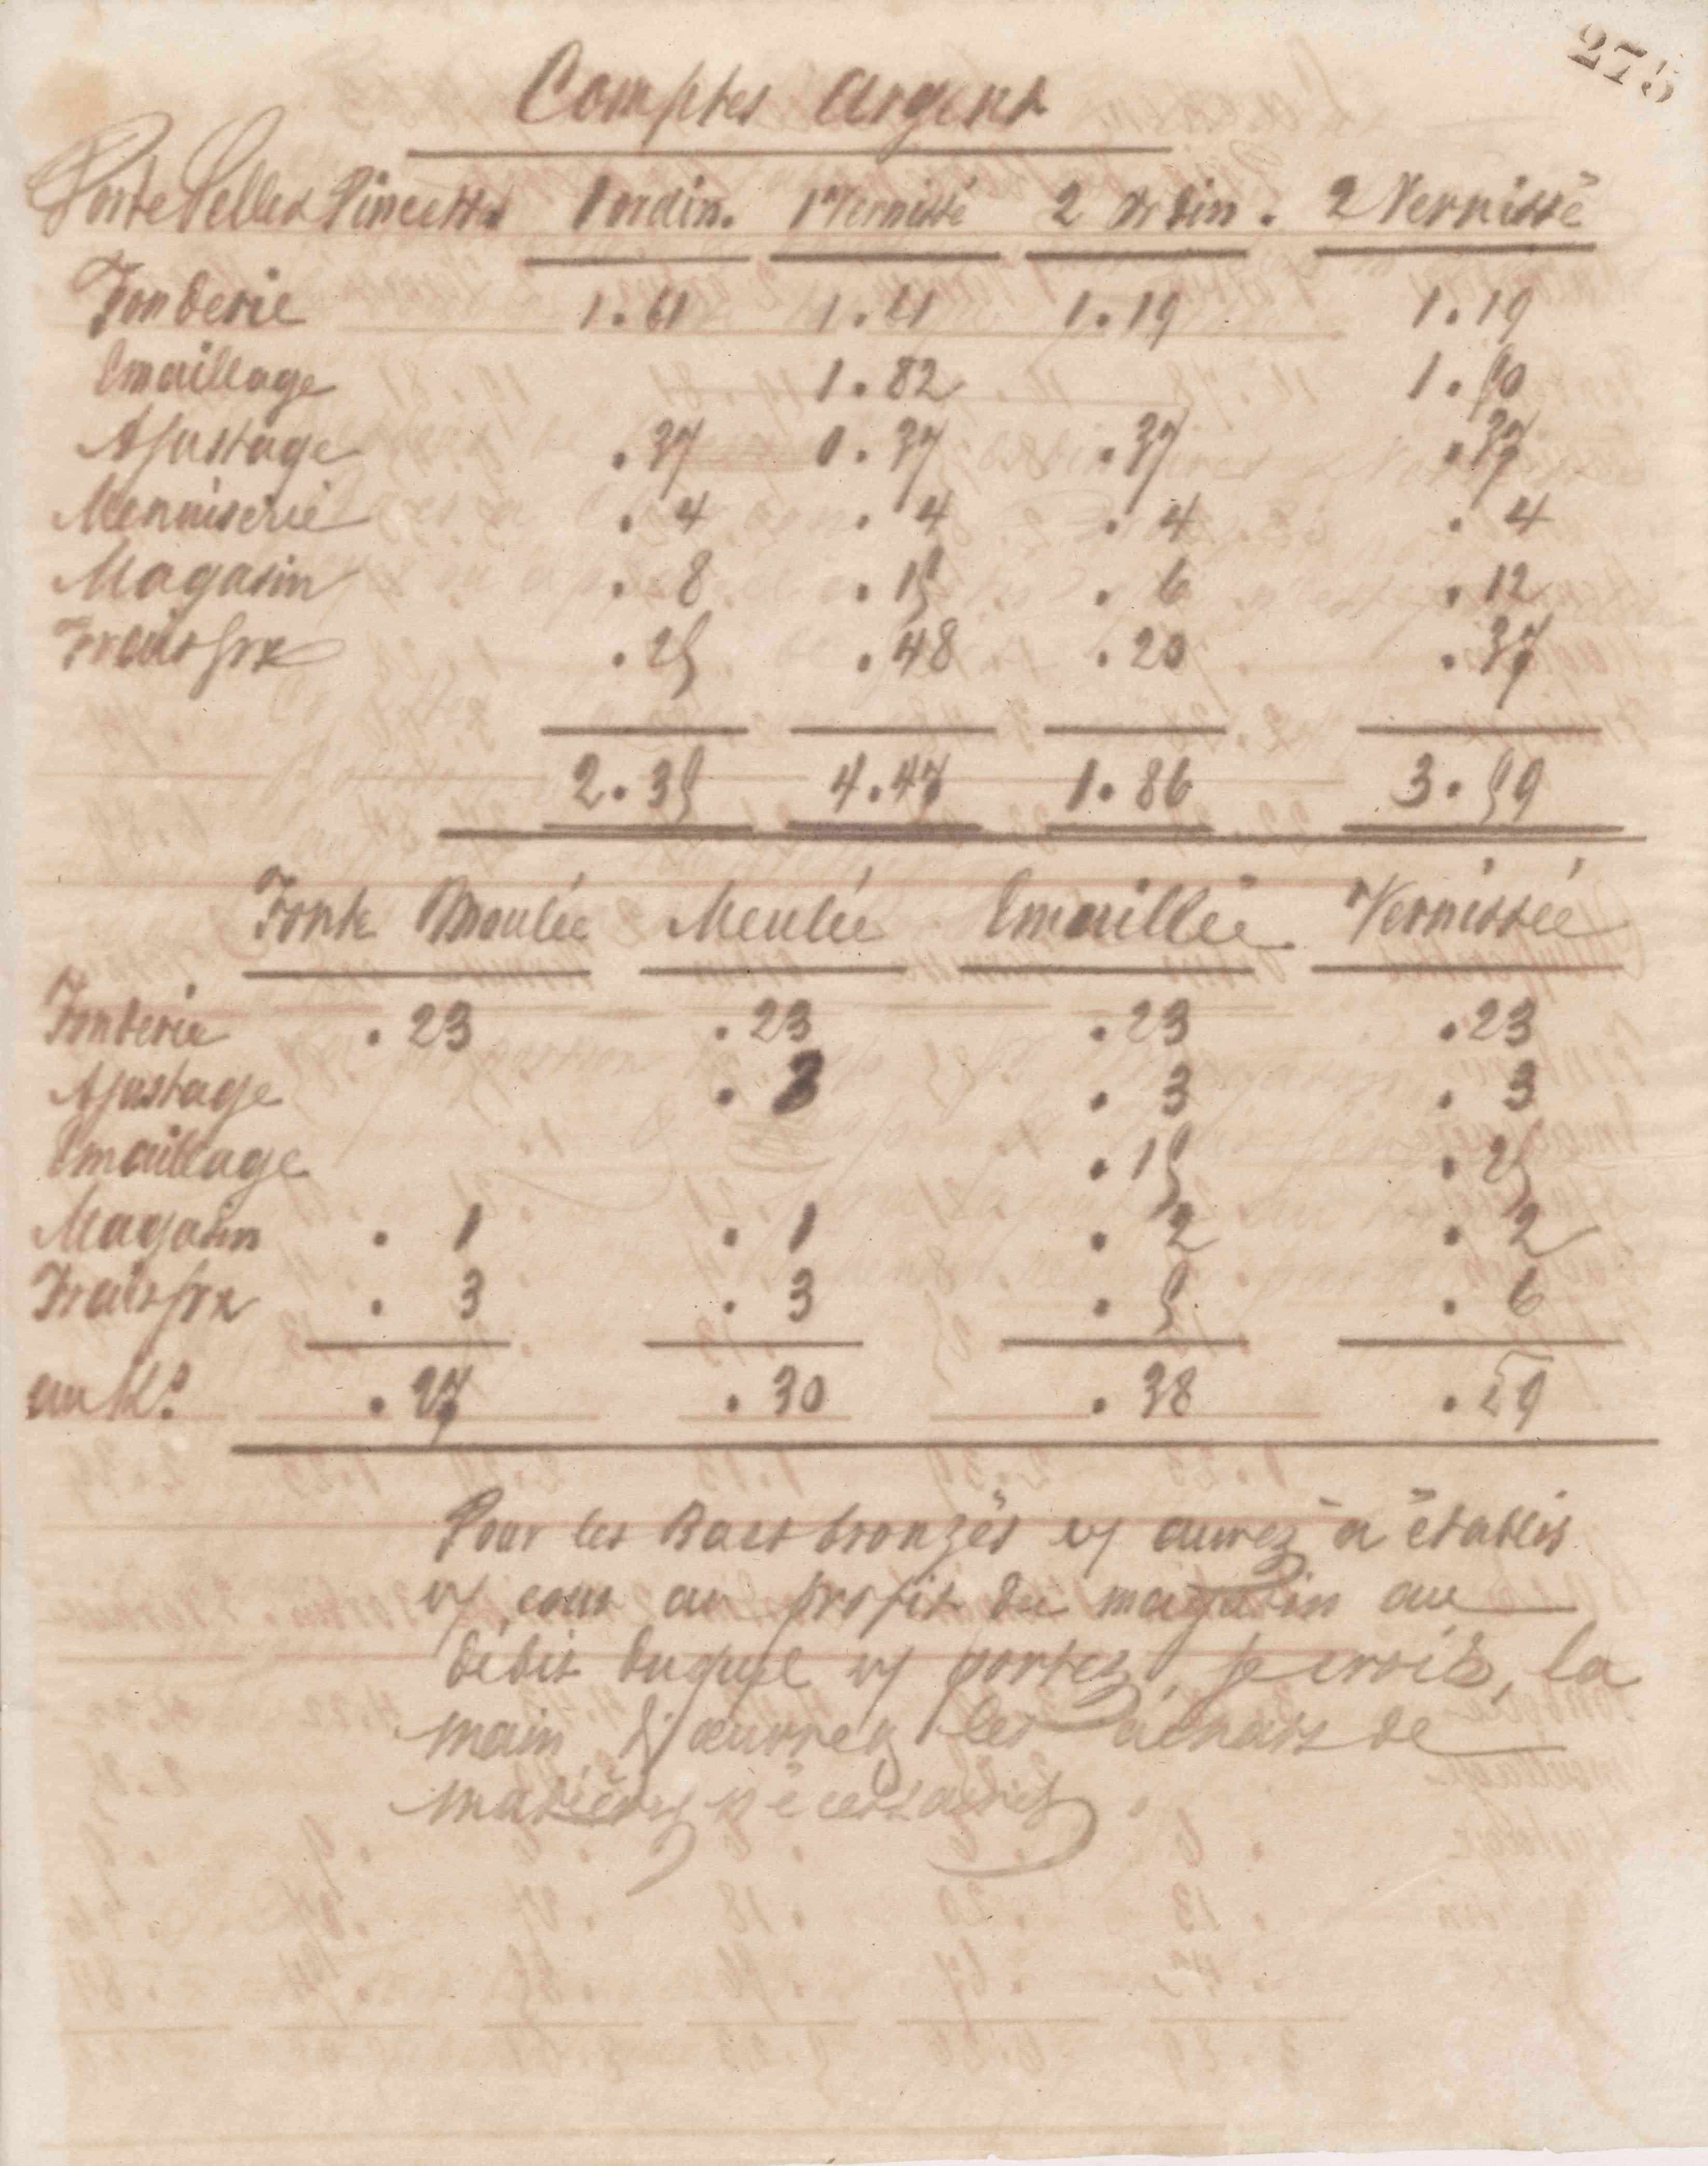 275
Comptes Argent
Porte Pelles & Pincettes 1 ordin. 1 Vernissé 2 Ordin. 2 Vernissé
Fonderie 1.61 1.61 1.19 1.19
Emaillage 1.82 1.50
Ajustage .37 0.37 .37 .37
Menuiserie .4 .4 .4 .4
Magasin .8 .15 .6 .12
Frais grx .25 .48 .20 .37
2.35 4.47 1.86 3.59
Fonte Moulée Meulée Emaillée Vernissée
Fonderie .23 .23 .23 .23
Ajustage .3 .3 .3
Emaillage .15 .25
Magasin .1 .1 .2 .2
Frais grx .3 .3 .5 .6
au Ko. .27 .30 .38 .59
Pour les bronzés v/ aurez à établir
v/ cour au profit du magasin au
débit duquel v/ portez, je crois, la
main d'œuvre & les achats de
matières nécessaires